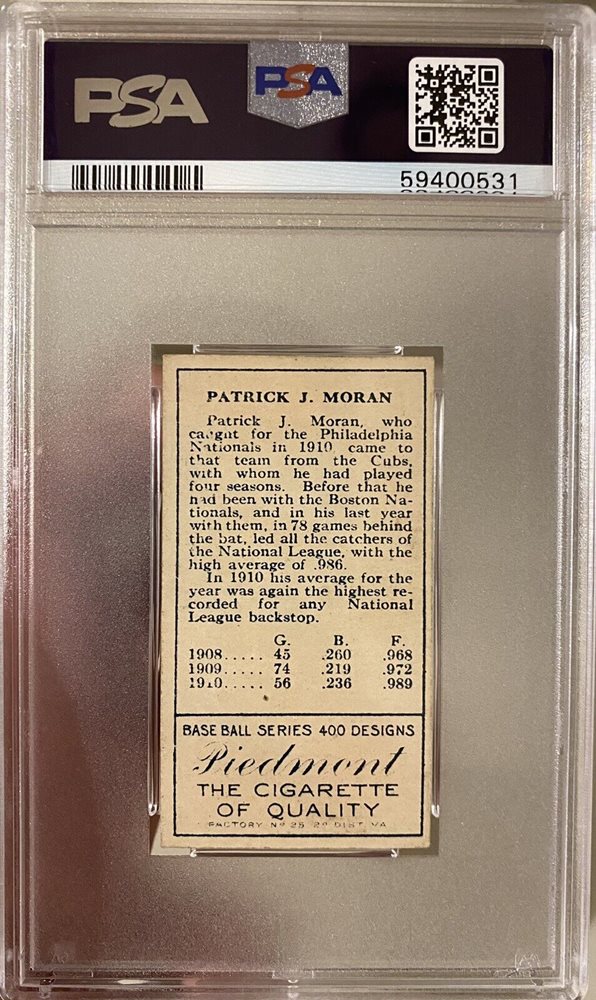 PSA
PSA
59400531
PATRICK J. MORAN
Patrick J. Moran, who
caught for the Philadelphia
Nationals in 1910 came to
that team from the Cubs,
with whom he had played
four seasons. Before that he
had been with the Boston Na-
tionals, and in his last year
with them, in 78 games behind
the bat, led all the catchers of
the National League, with the
high average of .986.
In 1910 his average for the
year was again the highest re-
corded for any National
League backstop.
G. B. F.
1908..... 45 .260 .968
1909..... 74 .219 .972
1910..... 56 .236 .989
BASE BALL SERIES 400 DESIGNS
Piedmont
THE CIGARETTE
OF QUALITY
FACTORY No 25 2D DIST. VA